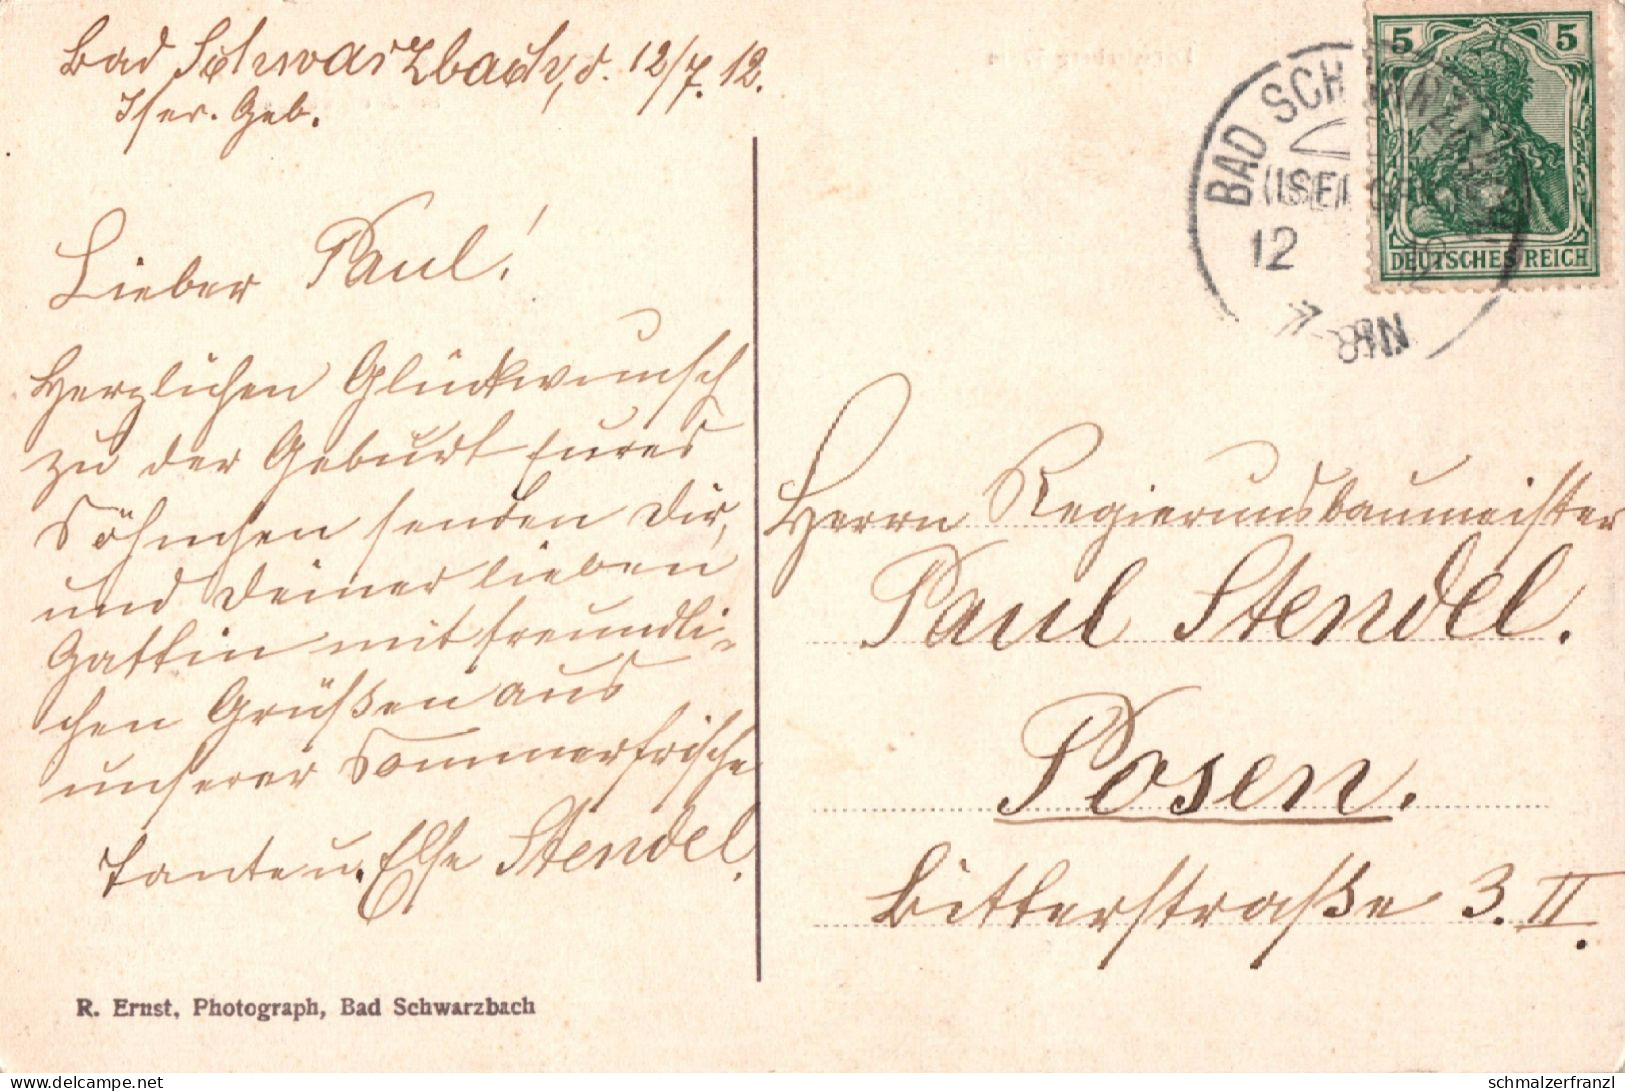 Bad Schwarzbach, d. 12/7.12.
Iser. Geb.
Lieber Paul!
Herzlichen Glückwunsch
zu der Geburt Eures
Söhnchen senden Dir,
und Deiner lieben
Gattin mit freundli-
chen Grüßen aus
unserer Sommerfrische
Tante u. Else Stendel.
R. Ernst, Photograph, Bad Schwarzbach
5 5
DEUTSCHES REICH
BAD SCHWARZBACH
(ISERGEB
12 12
Herrn Regierunsbaumeister
Paul Stendel.
Posen.
Bitterstraße 3. II.
schmalzerfranzl
www.delcampe.net